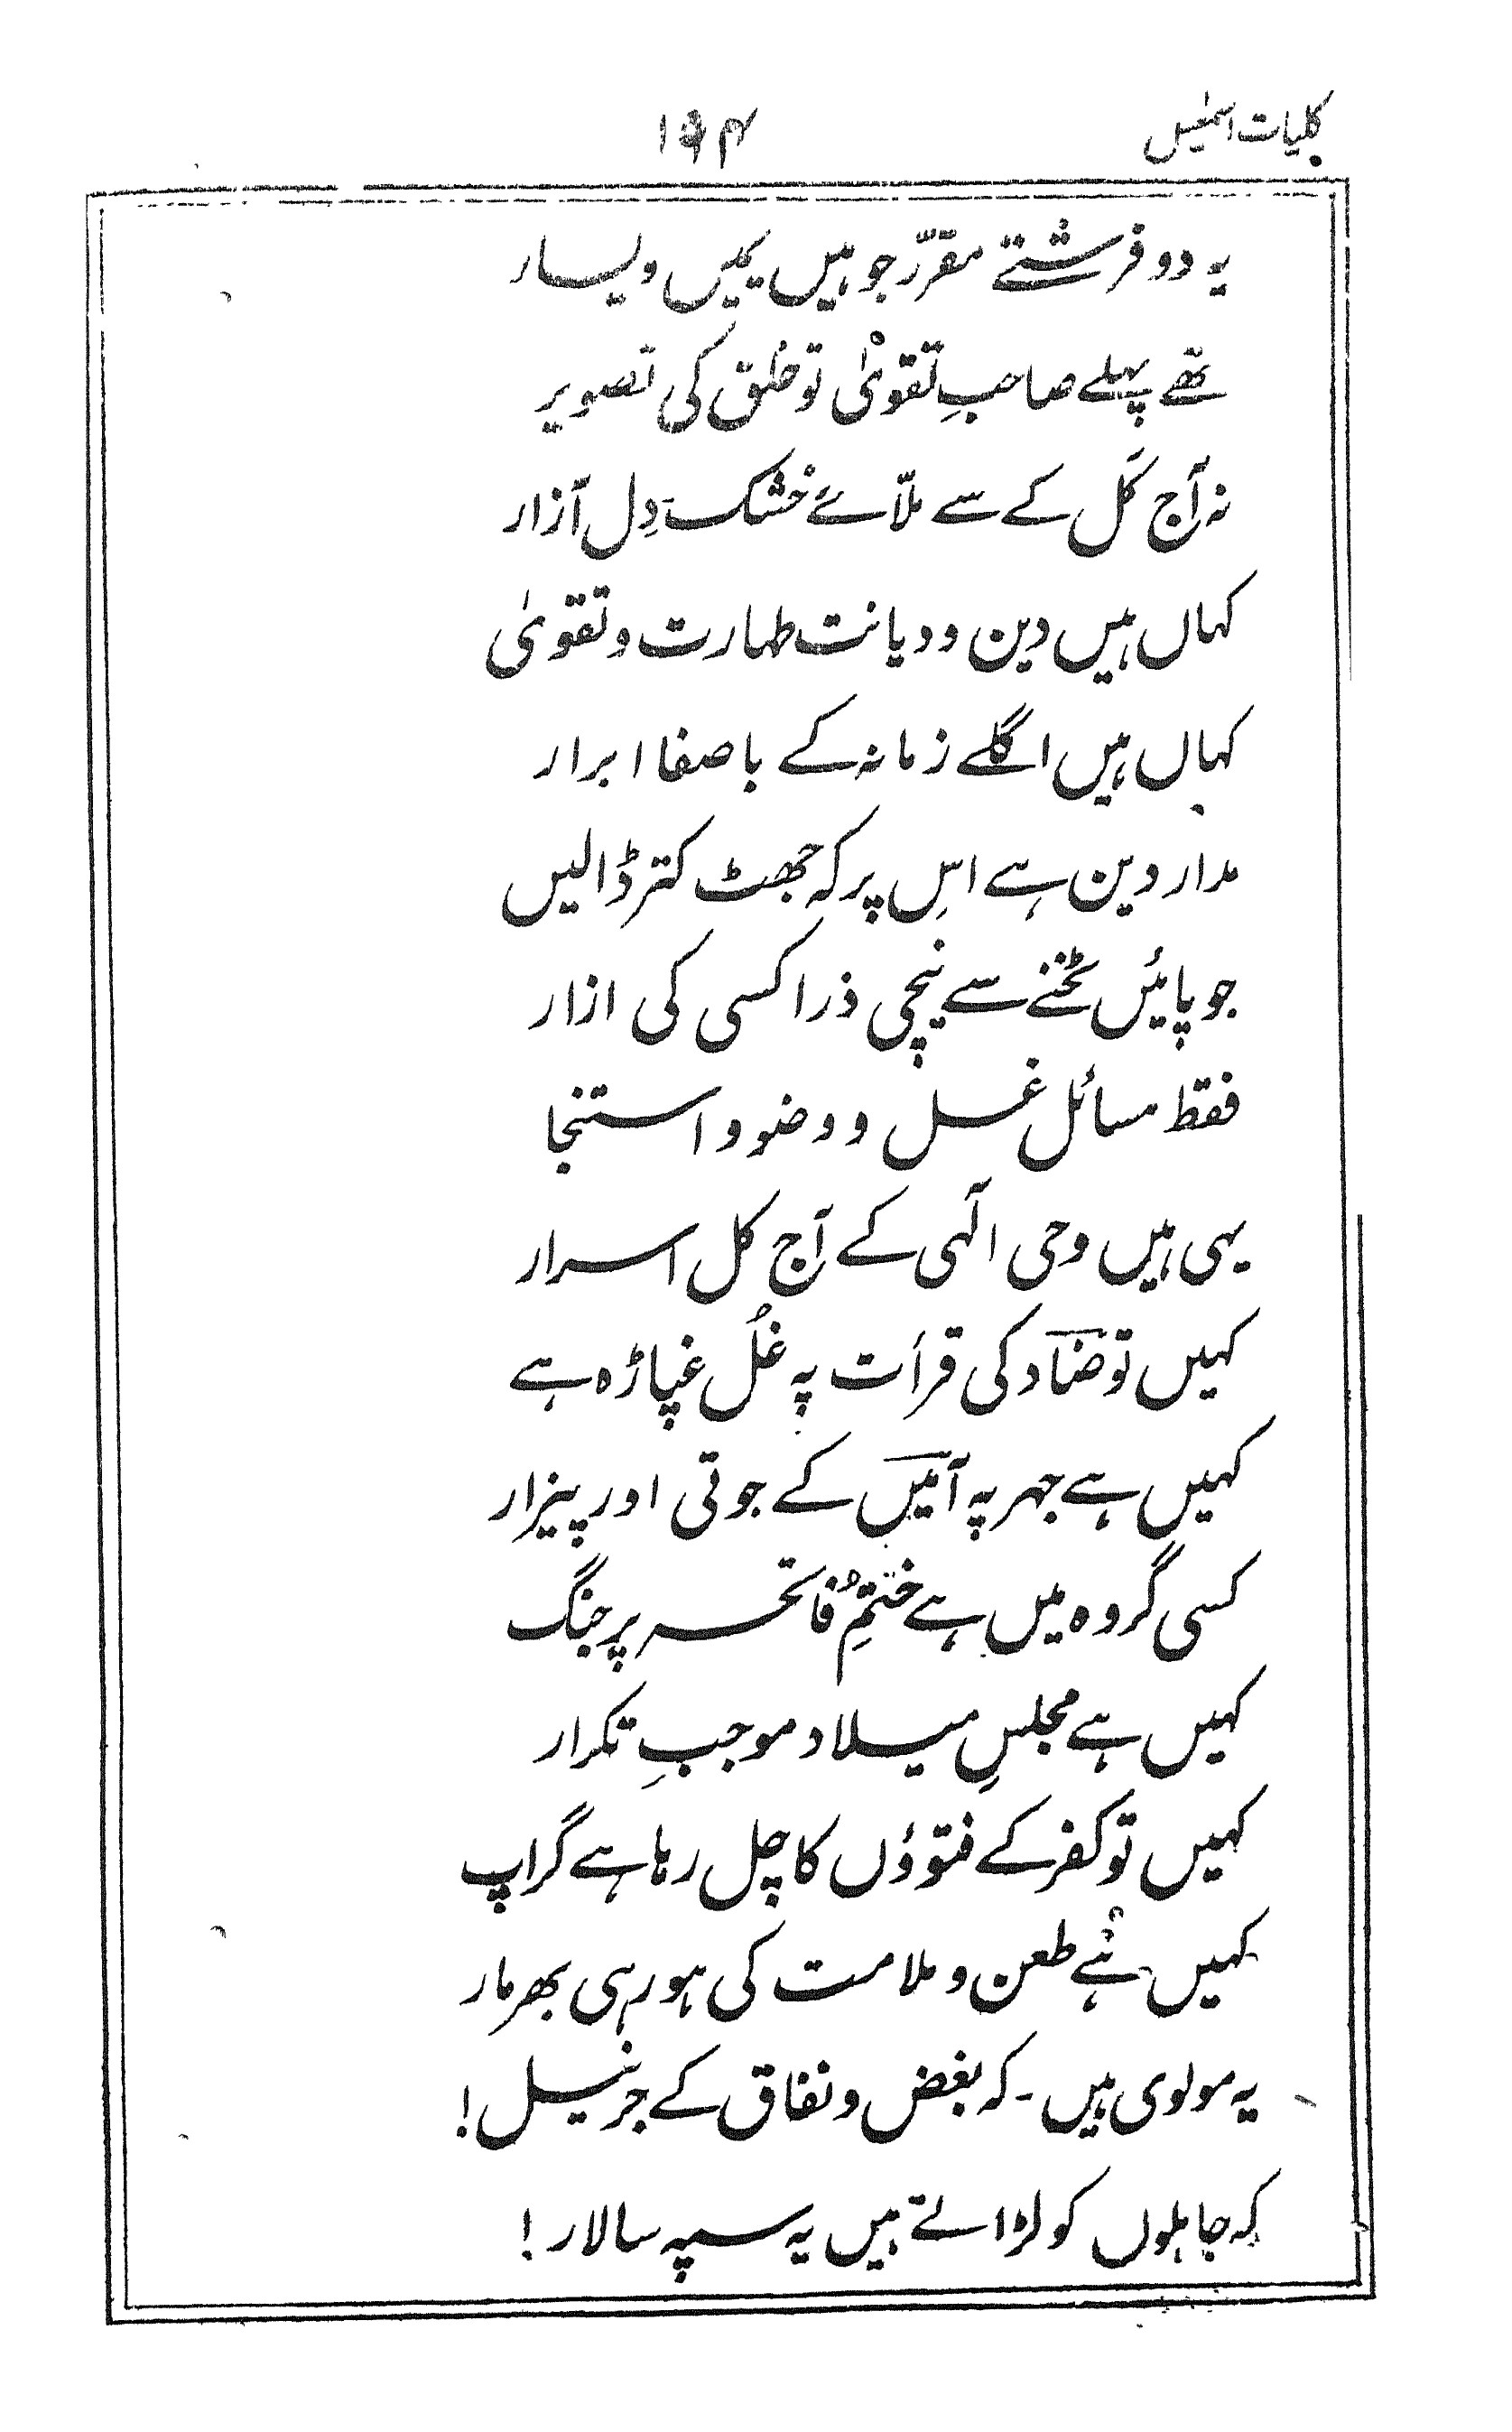 کلیات اسمٰعیل
یہ دو فرشتے مقرّر جو ہیں یمیں و یسار
تھے پہلے صاحبِ تقویٰ تو خلق کی تصویر
نہ آج کَل کے سے ملّائے خشک دِل آزار
کہاں ہیں دین و دیانت طہارت و تقویٰ
کہاں ہیں اگلے زمانہ کے باصفا ابرار
مدار دین ہے اسِ پر کہ جھٹ کتر ڈالیں
جو پائیں ٹخنے سے نیچی ذرا کسی کی ازار
فقط مسائل غسل و وضو و استنجا
یہی ہیں وحی الٰہی کے آج کل اسرار
کہیں تو ضاد کی قرأت پہ غُل غپاڑہ ہے
کہیں ہے جہر پہ آمیں کے جوتی اور پیزار
کسی گروہ میں ہے ختمِ فاتحہ پر جنگ
کہیں ہے مجلسِ میلاد موجبِ تکرار
کہیں تو کفر کے فتوؤں کا چل رہا ہے گراپ
کہیں ہے طعن و ملامت کی ہو رہی بھرمار
یہ مولوی ہیں - کہ بغض و نفاق کے جرنیل!
کہ جاہلوں کو لڑاتے ہیں یہ سپہ سالار!